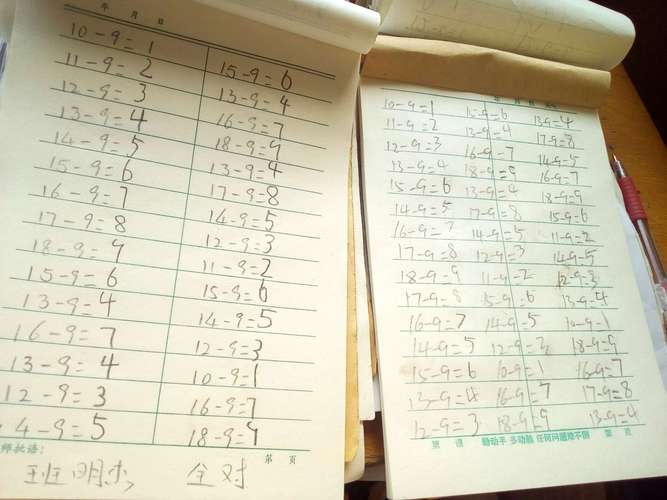 年 月 日
10-9=1
11-9=2 15-9=6
12-9=3 13-9=4
13-9=4 16-9=7
14-9=5 18-9=9
15-9=6 13-9=4
16-9=7 17-9=8
17-9=8 14-9=5
18-9=9 12-9=3
15-9=6 11-9=2
13-9=4 15-9=6
16-9=7 14-9=5
13-9=4 12-9=3
12-9=3 10-9=1
4-9=5 16-9=7
18-9=9
师批语: 第 页
全对
10-9=1 15-9=6 13-9=4
11-9=2 13-9=4 17-9=8
12-9=3 16-9=7 14-9=5
13-9=4 18-9=9 16-9=7
15-9=6 13-9=4 18-9=9
14-9=5 17-9=8 15-9=6
16-9=7 14-9=5 11-9=2
17-9=8 12-9=3 14-9=5
18-9=9 11-9=2 12-9=3
17-9=8 15-9=6 13-9=4
16-9=7 14-9=5 10-9=1
14-9=5 12-9=3 18-9=9
15-9=6 10-9=1 16-9=7
13-9=4 16-9=7 17-9=8
12-9=3 18-9=9 13-9=4
勤动手 多动脑 任何问题难不倒